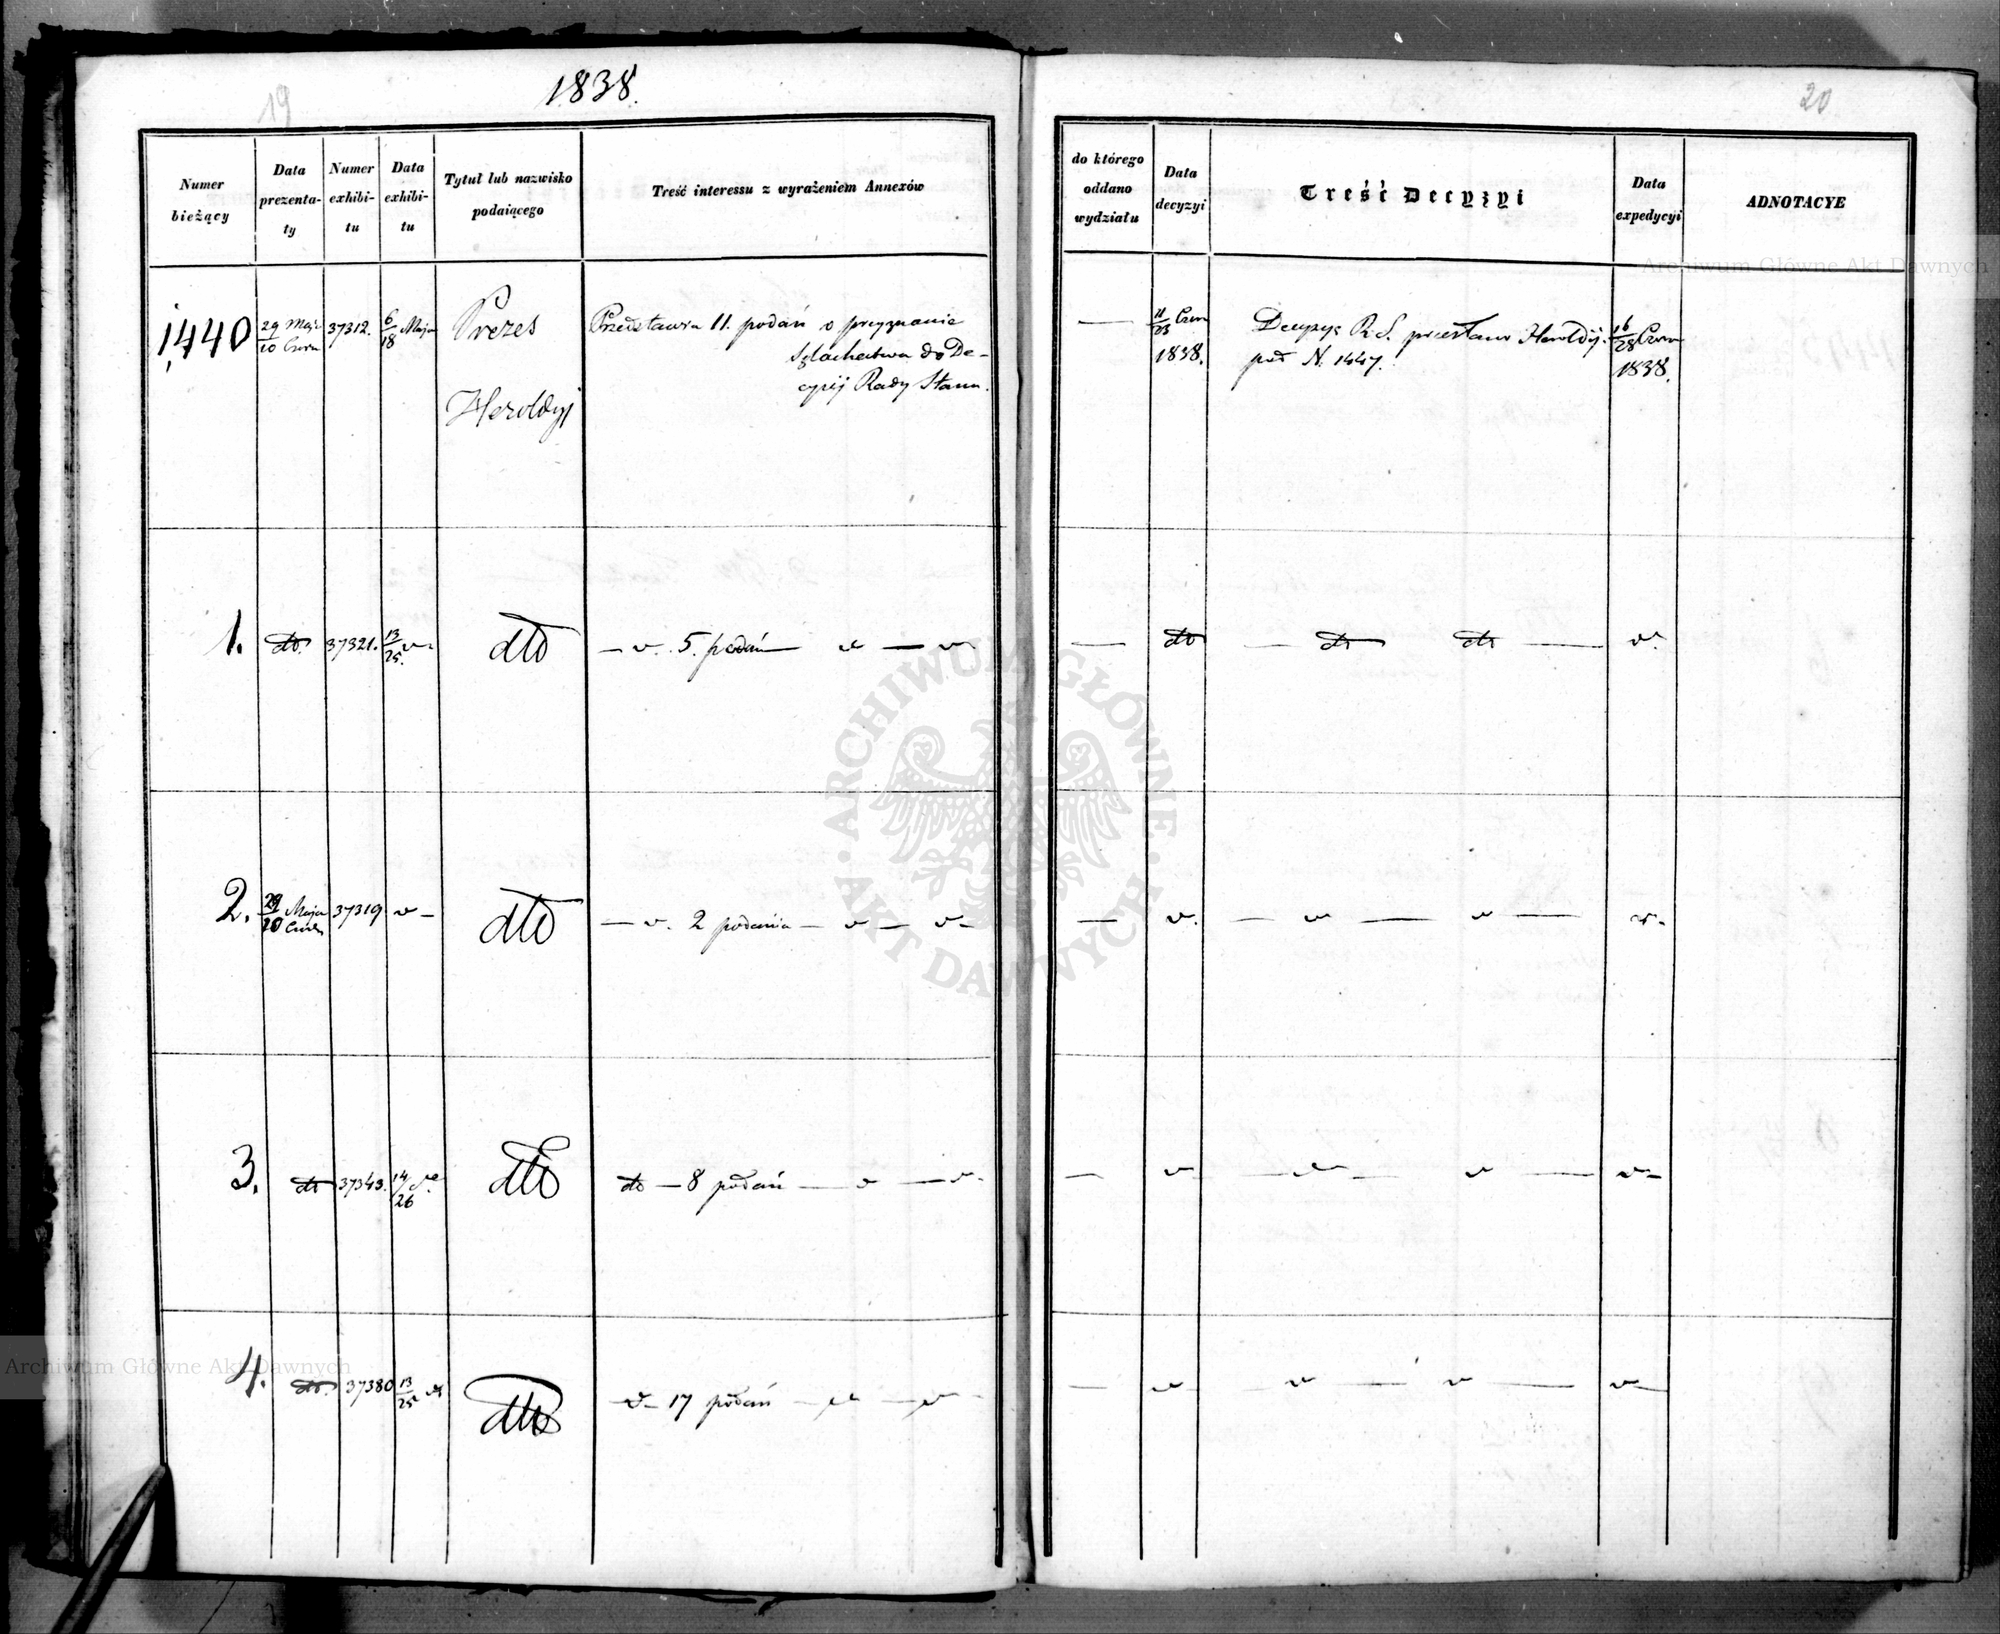 19
1838.
Numer bieżący
Data prezenta- ty
Numer exhibi- tu
Data exhibi- tu
Tytuł lub nazwisko podaiącego
Treść interessu z wyrażeniem Annexów
1440
29 Maja
10 Czrw
37312.
6/18 Maja
Prezes
Heroldyj
Przedstawia 11. podań o przyznanie
Szlachectwa do De-
cyzij Rady Stanu.
1.
dto.
37321.
13/25. v-
dto
— v. 5. podań — v — v.
2.
29 Maja
10 Czrw
37319
v —
dto
— v. 2 podania — v — v-
3.
dto
37343.
14/26 v.
dto
dto — 8 podań — v — v-
4.
dto.
37380
13/25 v
dto
v- 17 podań — v — v -
20
do którego oddano wydziału
Data decyzyi
Treść Decyzyi
Data expedycyi
ADNOTACYE
—
11/23 Czrw
1838.
Decyzyę R. S. przesłano Heroldij.
pod N. 1447.
16/28 Czrw
1838.
— dto — dto dto — v.
— v. — v — v — v-
— v- — v- — v — v-
— v- — v — v — v-
ARCHIWUM GŁÓWNE AKT DAWNYCH
Archiwum Główne Akt Dawnych
Archiwum Główne Akt Dawnych